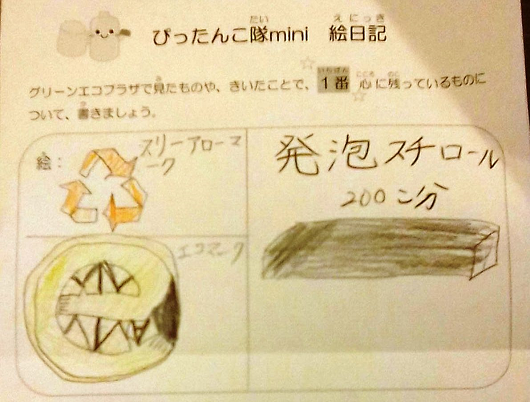 ぴったんこ隊mini 絵日記
グリーンエコプラザで見たものや、きいたことで、1番心に残っているものに
ついて、書きましょう。
絵：
スリーアローマ
ーク
エコマーク
発泡スチロール
200こ分